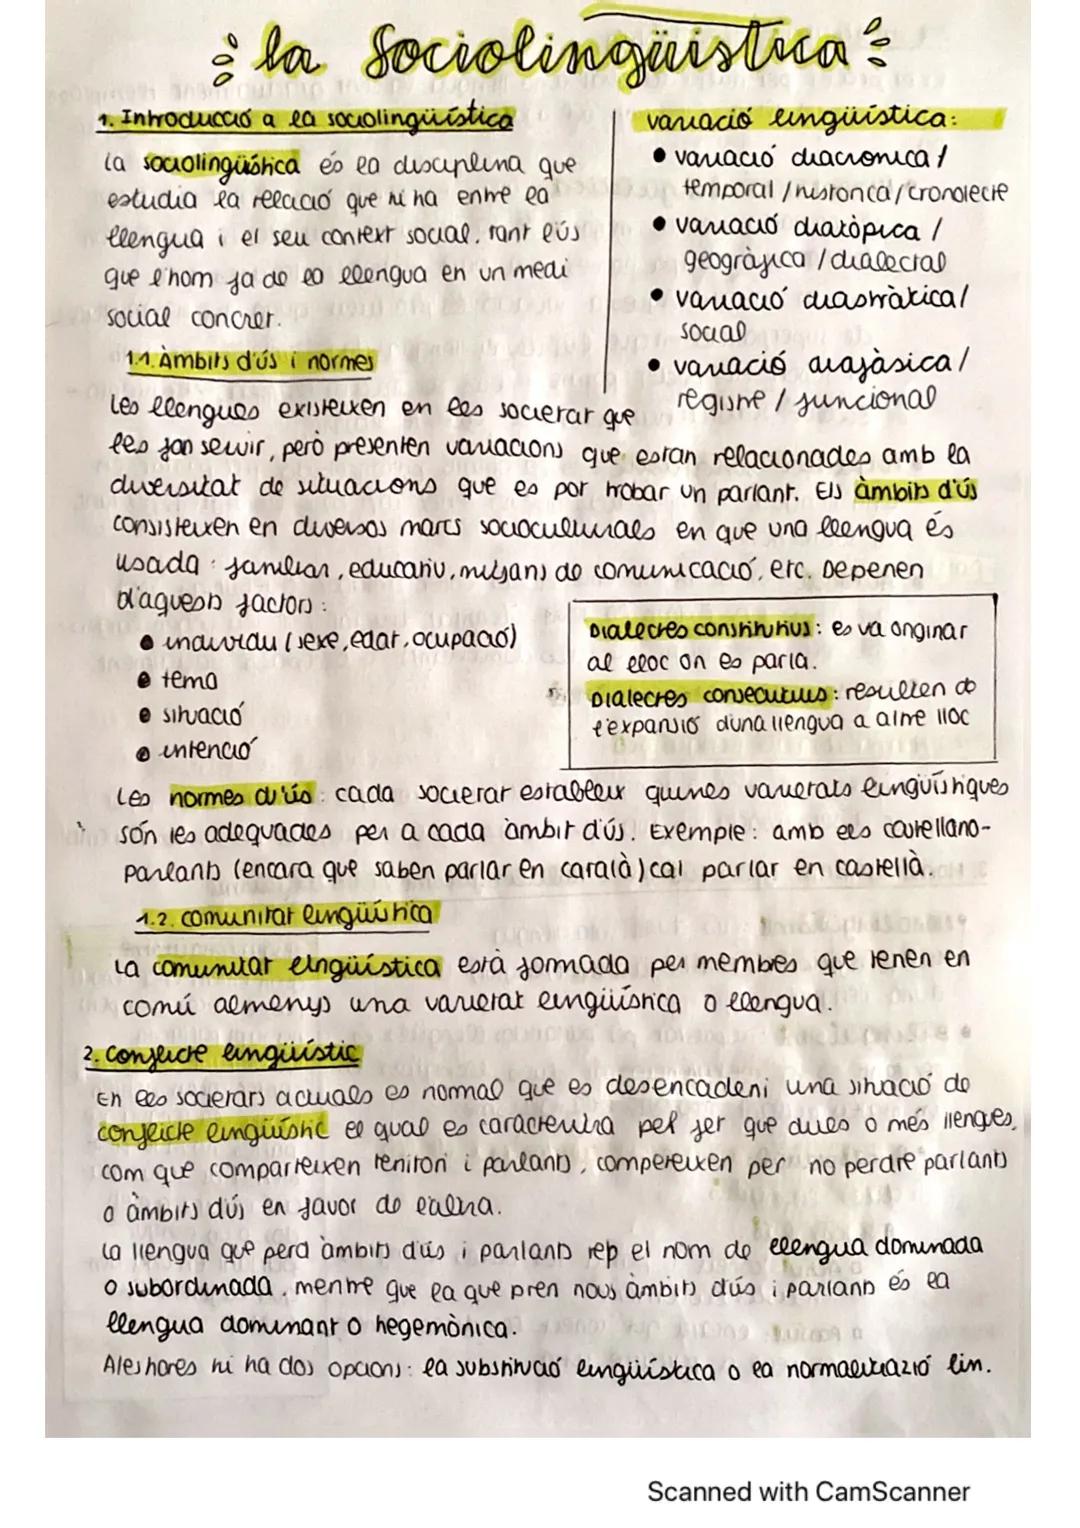 la Sociolingüística
1. Introducció a la sociolingüística
La sociolingüística és la disciplina que
estudia la relació que hi ha entre la
llengua i el seu context social, tant l'ús
que l'hom fa de la llengua en un medi
social concret.
variació lingüística:
• variació diacronica /
temporal / historica / cronolecte
• variació diatòpica /
geogràfica / dialectal
• variació diastràtica /
social
• variació diafàsica /
registre / funcional
1.1. Àmbits d'ús i normes
Les llengues existeixen en les societat que
les fan servir, però presenten variacions que estan relacionades amb la
diversitat de situacions que es pot trobar un parlant. Els àmbits d'ús
consisteixen en diversos marcs socioculturals en que una llengua és
usada: familiar, educatiu, mitjans de comunicació, etc. Depenen
d'aquests factors:
• individu (sexe, edat, ocupació)
• tema
• situació
• intenció
Dialectes constitutius: es va originar
al lloc on es parla.
Dialectes consecutius: resulten de
l'expansió d'una llengua a altre lloc
Les normes d'ús: cada societat estableix quines varietats lingüístiques
són les adequades per a cada àmbit d'ús. Exemple: amb els castellano-
parlants (encara que saben parlar en català) cal parlar en castellà.
1.2. Comunitat lingüística
La comunitat lingüística està formada per membres que tenen en
comú almenys una varietat lingüística o llengua.
2. Conflicte lingüístic
En les societats actuals es normal que es desencadeni una situació de
conflicte lingüístic el qual es caracteritza pel fet que dues o més llengues,
com que comparteixen territori i parlants, competeixen per no perdre parlants
o àmbits d'ús en favor de l'altra.
La llengua que perd àmbits d'ús i parlants rep el nom de llengua dominada
o subordinada, mentre que la que pren nous àmbits d'ús i parlants és la
llengua dominant o hegemònica.
Aleshores hi ha dos opcions: la substitució lingüística o la normalització lin.
Scanned with CamScanner